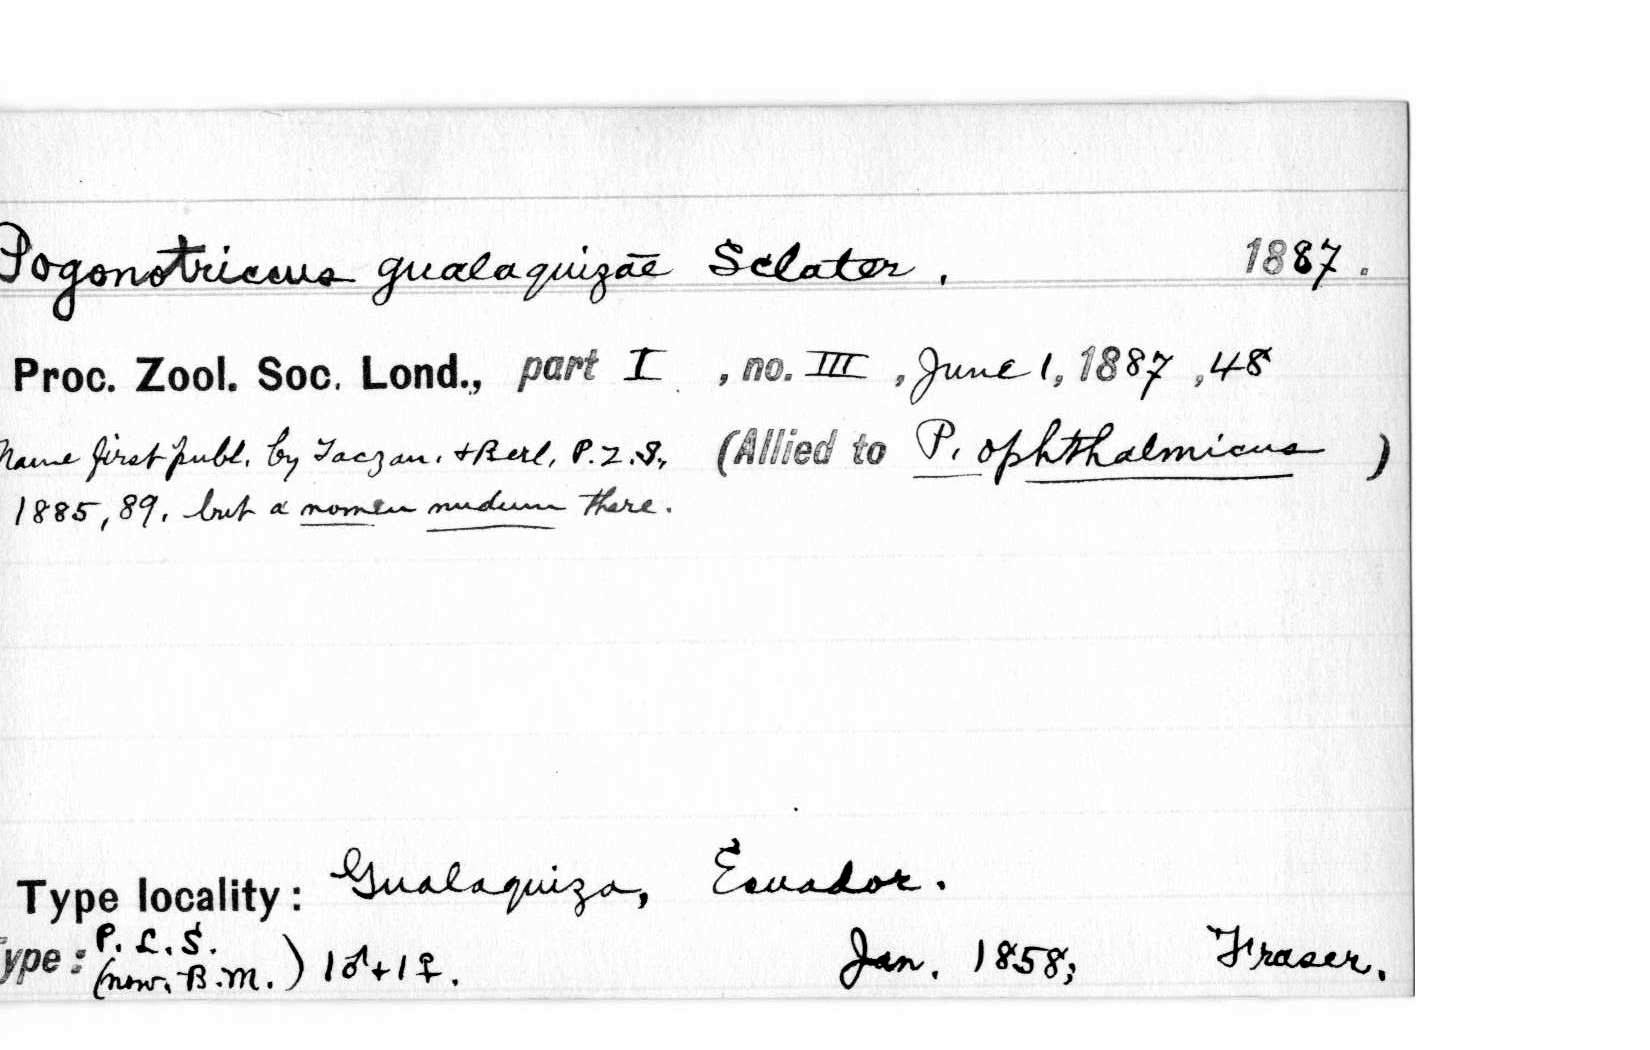 Pogonotriccus gualaquizae Sclater. 1887.
Proc. Zool. Soc. Lond., part I, no. III, June 1, 1887, 48
Name first publ. by Taczan. + Berl, P.Z.S., (Allied to P. ophthalmicus)
1885, 89, but a nomen nudum there.
Type locality: Gualaquiza, Ecuador.
Type: P.L.S. (now. B.M.) 1♂+1♀. Jan. 1858; Fraser.